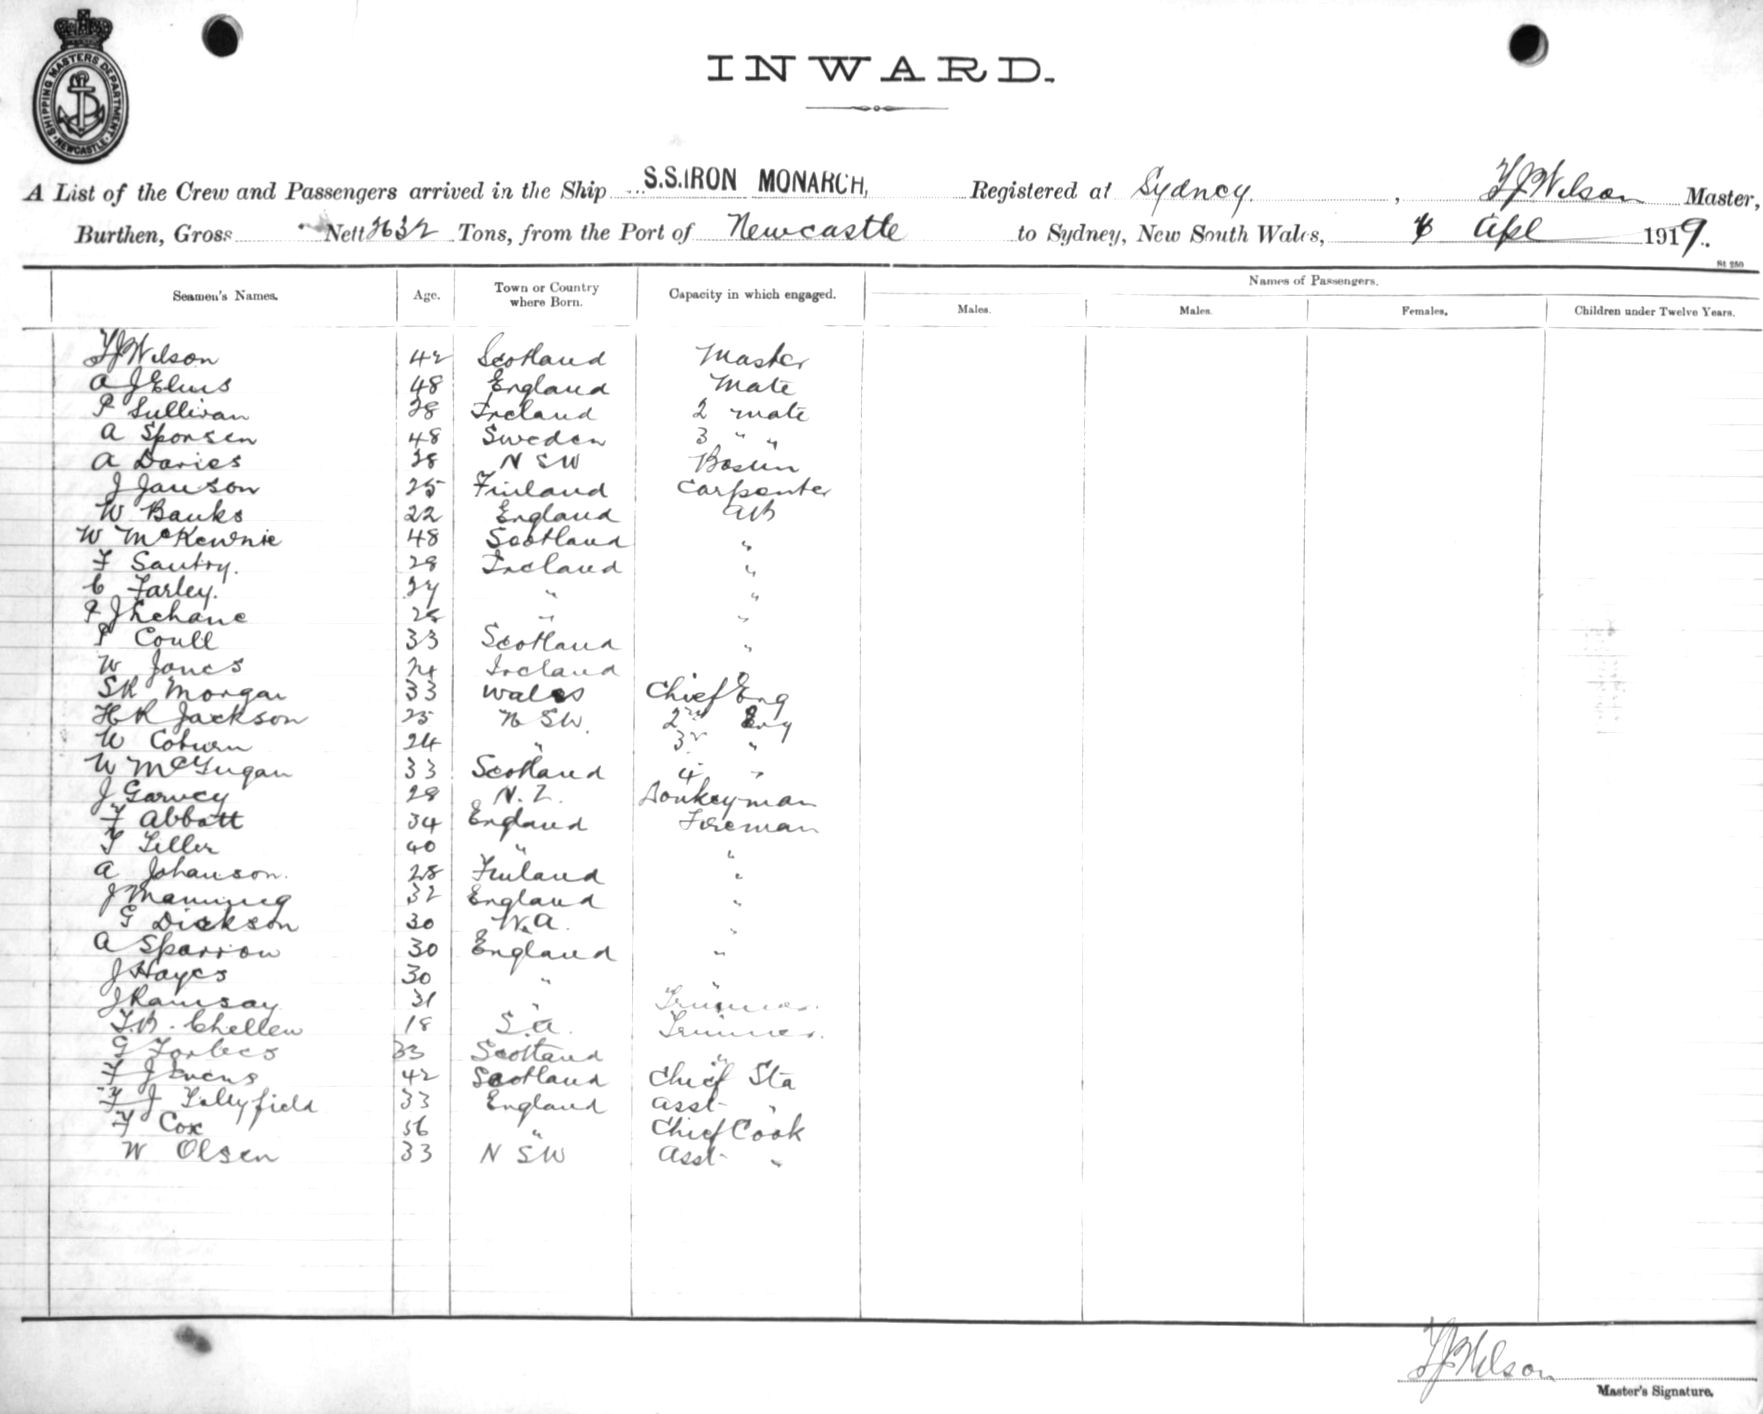 SHIPPING MASTERS DEPARTMENT NEWCASTLE
INWARD.
A List of the Crew and Passengers arrived in the Ship S.S. IRON MONARCH, Registered at Sydney, Wilson Master,
Burthen, Gross Nett 2632 Tons, from the Port of Newcastle to Sydney, New South Wales, Apl 1919.
St 250
Seamen's Names. Age. Town or Country where Born. Capacity in which engaged. Names of Passengers.
Males. Males. Females. Children under Twelve Years.
Wilson 42 Scotland Master
A J Elms 48 England Mate
P Sullivan 28 Ireland 2 mate
A Sporsen 48 Sweden 3 " "
A Davies 28 N S W Bosun
J Janson 25 Finland Carpenter
W Banks 22 England AB
W McKewnie 48 Scotland "
F Santry. 28 Ireland "
C Farley. 27 " "
P J Lehane 28 " "
P Coull 33 Scotland "
W Jones 24 Ireland "
S R Morgan 33 Wales Chief Eng
H R Jackson 25 N S W. 2nd Eng
W Coburn 24 " 3r "
W McGugan 33 Scotland 4 "
J Garvey 28 N.Z. Donkeyman
F Abbott 34 England Fireman
40 " "
A Johanson. 28 Finland "
J Manning 32 England "
G Dickson 30 W.A. "
A Sparrow 30 England "
J Hayes 30 " "
J Ramsay 31 " Trimmer.
Chellew 18 S.A. Trimmer.
G Forbes 33 Scotland "
F J Evens 42 Scotland Chief Sta
F J Lillyfield 33 England Asst "
F Cox 56 " Chief Cook
W Olsen 33 N S W Asst "
Wilson
Master's Signature.